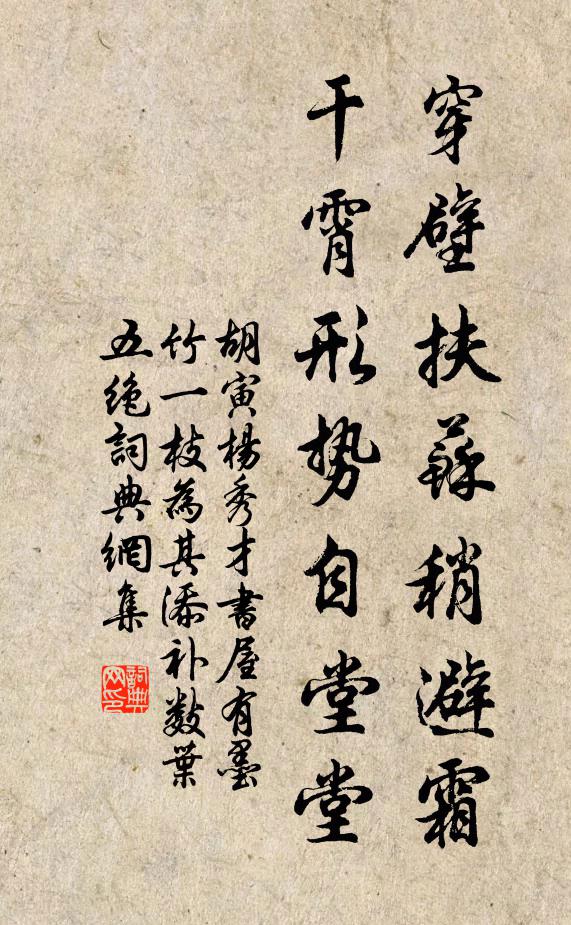 穿壁扶蘇稍避霜
干霄形势自堂堂
胡寅楊秀才書屋有墨
竹一枝為其添补数葉
五绝詞典網集
詞典网印